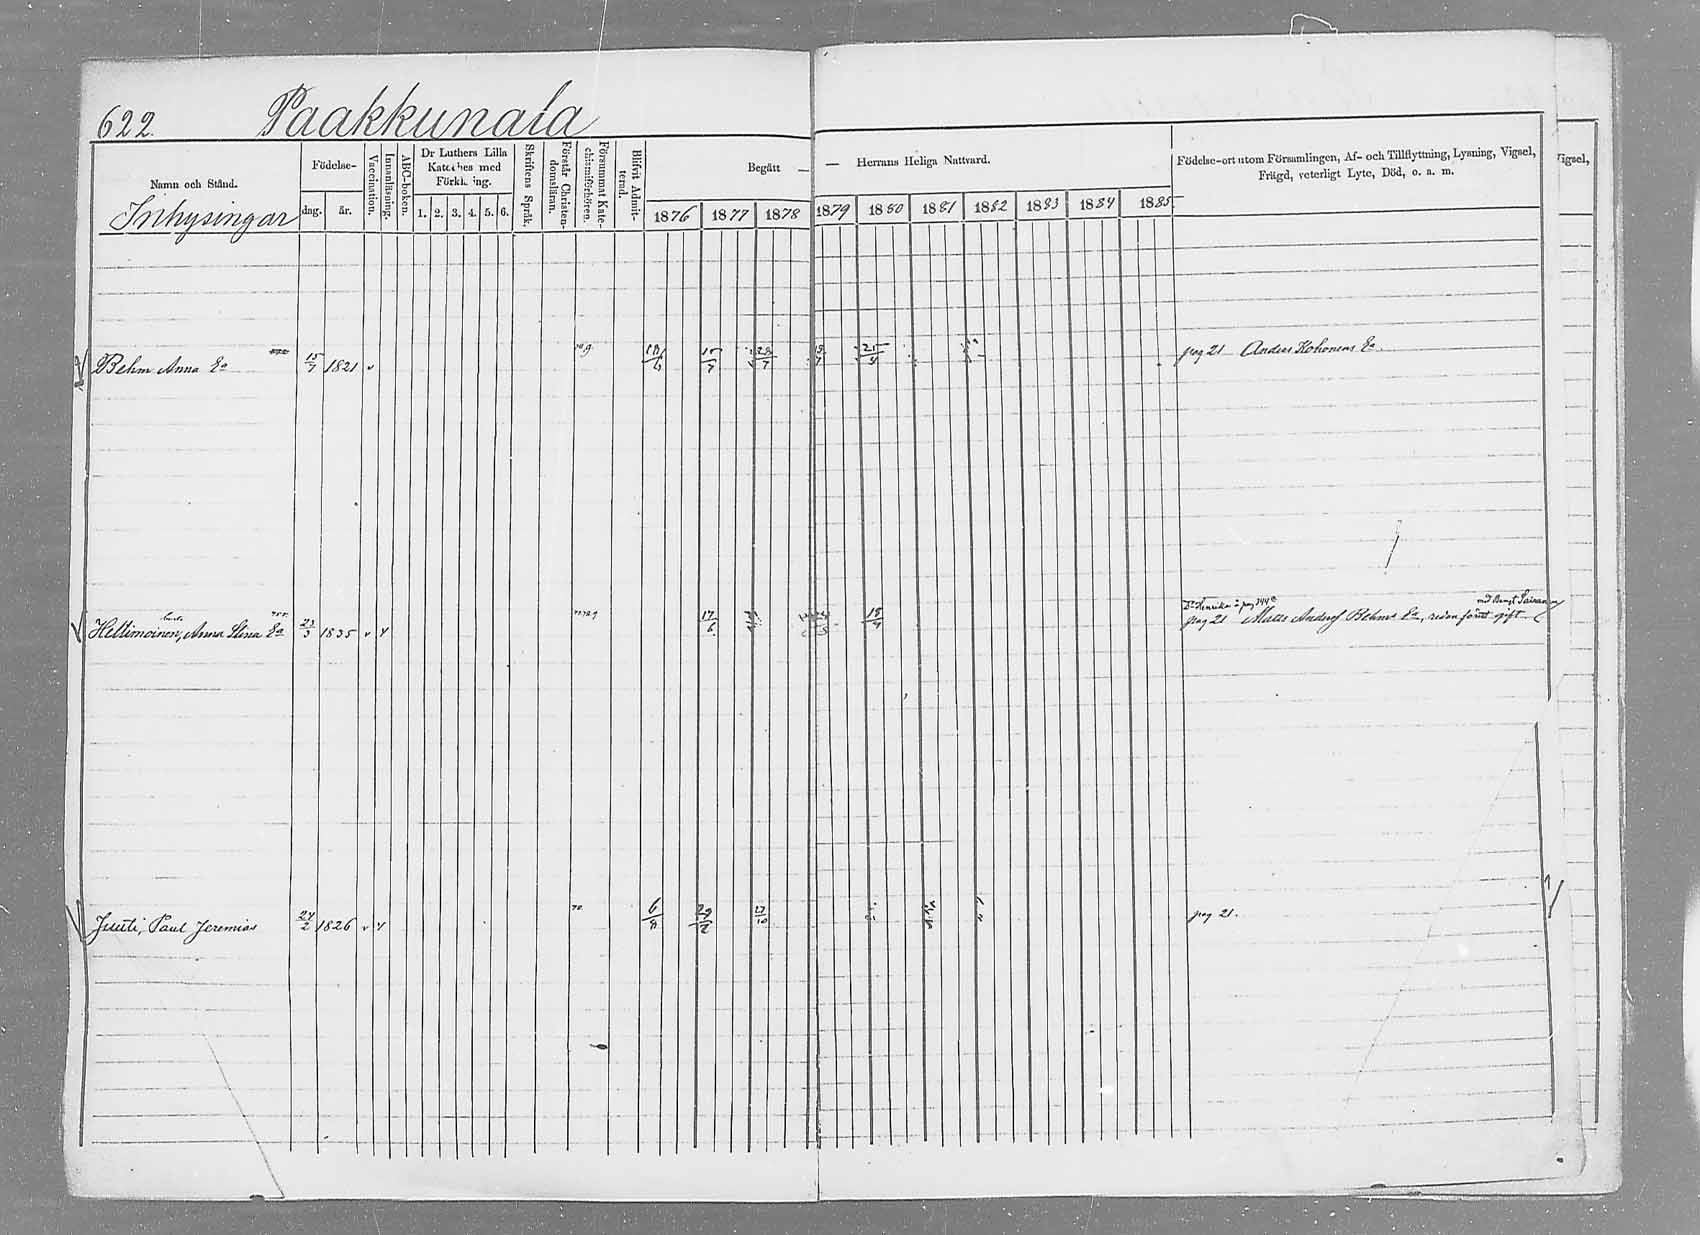 622. Paakkunala
Namn och Stånd.
Inhysingar
Födelse-
dag. år.
Vaccination.
Innanläsning.
ABC-boken.
Dr Luthers Lilla
Kateches med
Förkl. ing.
1. 2. 3. 4. 5. 6.
Skriftens Språk.
Förstår Christen-
domsläran.
Försummat Kate-
chismiförhören.
Blifvit Admit-
terad.
Begått — — Herrans Heliga Nattvard.
1876 1877 1878 1879 1880 1881 1882 1883 1884 1885
Födelse-ort utom Församlingen, Af- och Tillflyttning, Lysning, Vigsel,
Frägd, veterligt Lyte, Död, o. a. m.
Vigsel,
Behm Anna Ea 15/7 1821 v 15/7 25/4 pag 21 Anders Kohonens Ea.
Heltimoinen, Anna Stina Ea 23/3 1835 v y 17/6 18/4 pag 21 Matts Andersf Behms Ea, redan förut gift
Juuti, Paul Jeremias 24/2 1826 v y 29/2 17/10 pag 21.